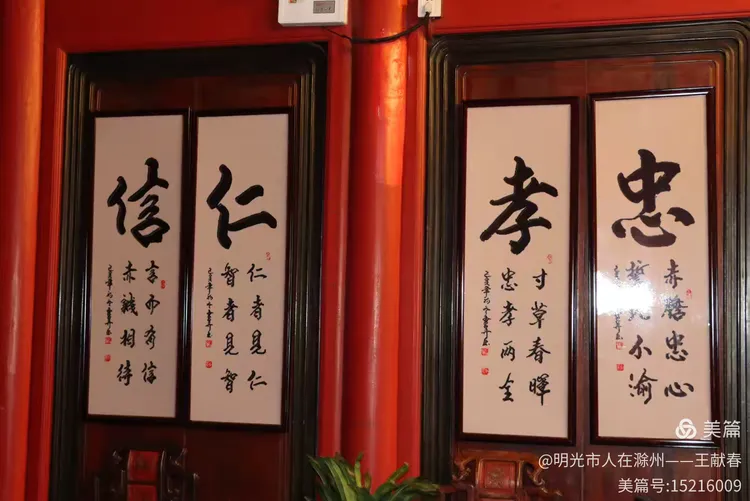 忠
赤膽忠心
誓死不渝
孝
寸草春暉
忠孝两全
仁
仁者見仁
智者見智
信
言而有信
赤誠相待
美篇
@明光市人在滁州——王献春
美篇号:15216009